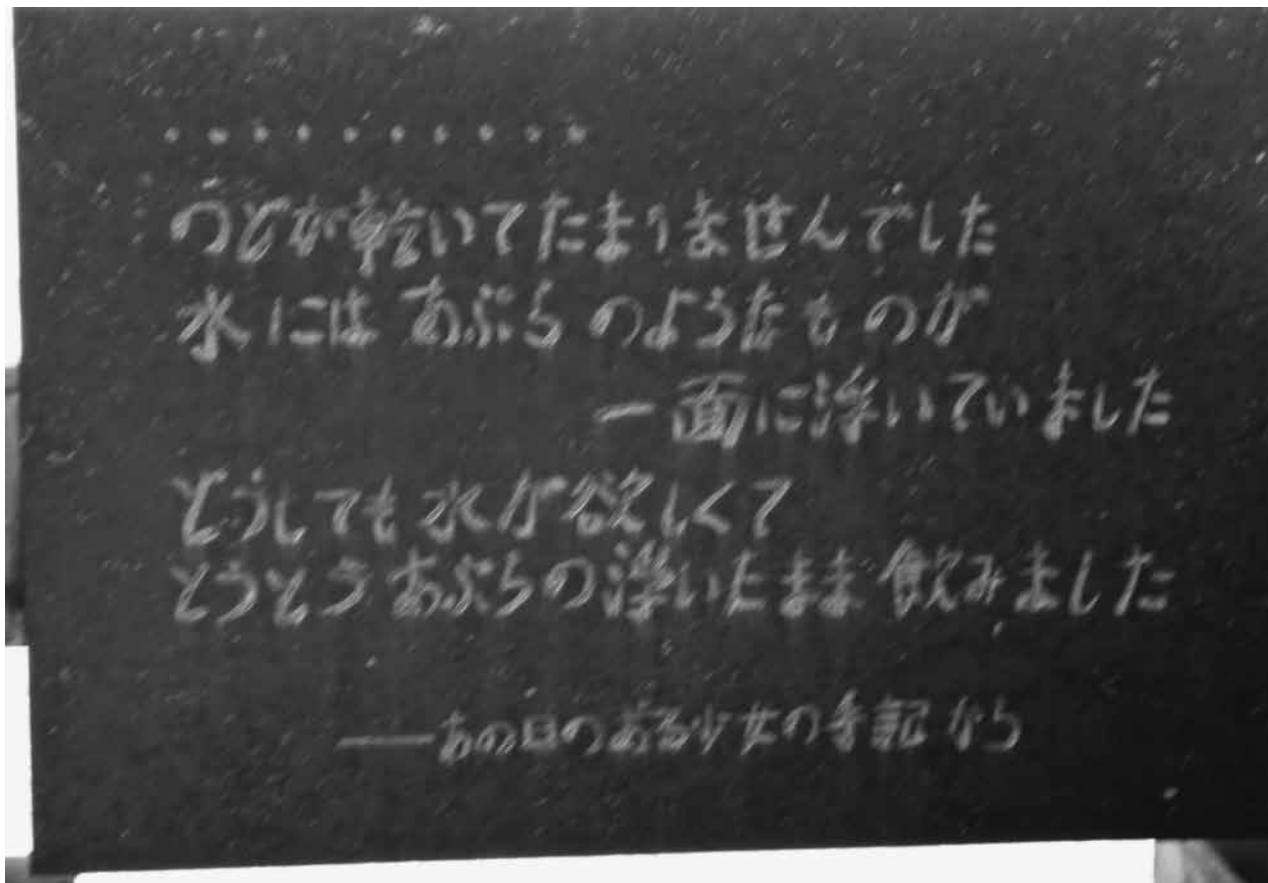 ・・・・・・・・・・
のどが乾いてたまりませんでした
水には あぶらのようなものが
一面に浮いていました
どうしても水が欲しくて
とうとうあぶらの浮いたまま飲みました
――あの日のある少女の手記から